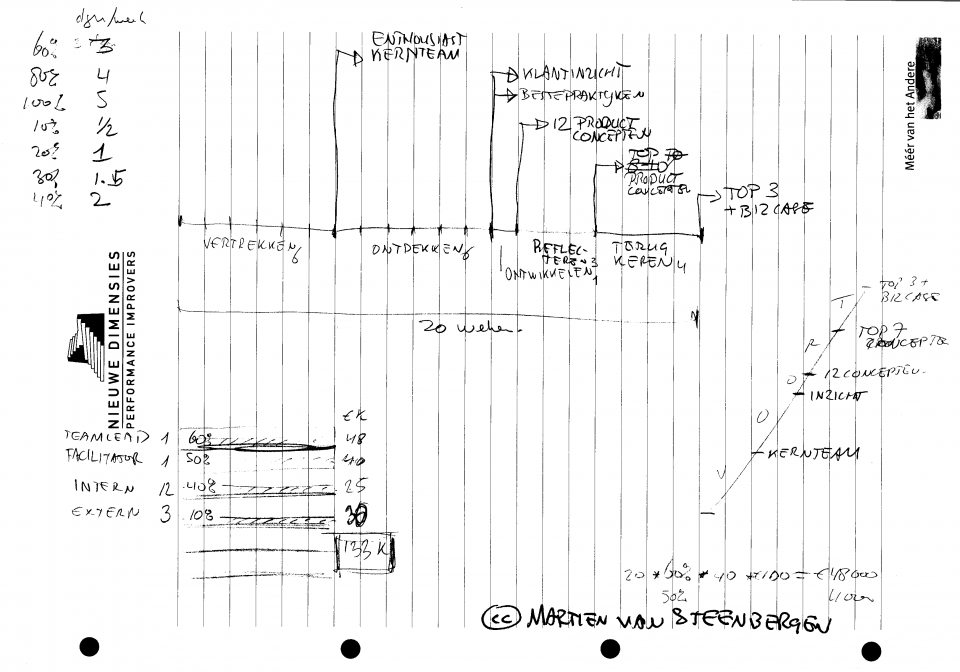 dgn/week
60% 3
80% 4
100% 5
10% 1/2
20% 1
30% 1.5
40% 2
ENTHOUSIAST
KERNTEAM
KLANTINZICHT
BESTEPRAKTIJKEN
12 PRODUCT
CONCEPTEN
TOP
PRODUCT
CONCEPTEN
TOP 3
+ BIZCASE
Méér van het Andere
VERTREKKEN 6
ONTDEKKEN 6
REFLEC-
TEREN 3
ONTWIKKELEN 1
TERUG
KEREN 4
20 weken.
NIEUWE DIMENSIES
PERFORMANCE IMPROVERS
TOP 3 +
BIZCASE
TOP 7
CONCEPTEN
12 CONCEPTEN
INZICHT
KERNTEAM
T
R
O
O
V
€K
TEAMLEAD 1 60% 48
FACILITATOR 1 50% 40
INTERN 12 40% 25
EXTERN 3 10%
133 K
20 * 60% * 40 * 100 = €48000
50%
(cc) MARTIEN VAN STEENBERGEN